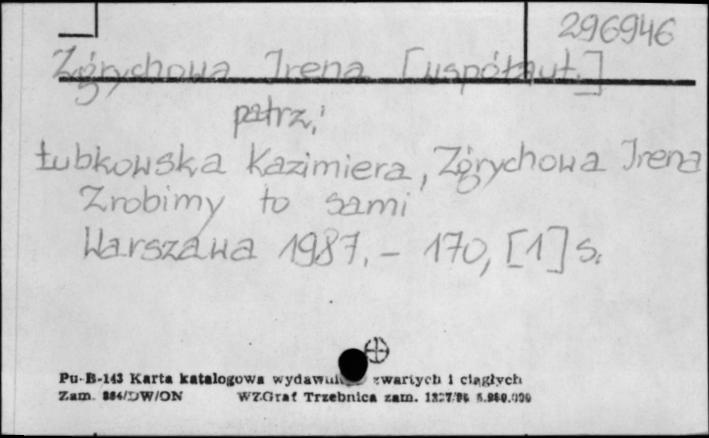 296946
Zgrychowa Irena [współaut.]
patrz:
Łubkowska Kazimiera, Zgrychowa Irena
Zrobimy to sami
Warszawa 1987. - 170, [1] s.
Pu-B-143 Karta katalogowa zwartych i ciągłych
Zam. /DW/ON WZGraf Trzebnica zam.